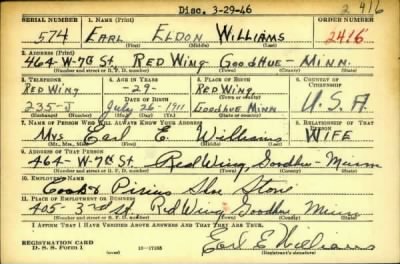 Disc. 3-29-46 2 416
SERIAL NUMBER 1. NAME (Print) ORDER NUMBER
574 EARL ELDON WILLIAMS 2416
(First) (Middle) (Last)
2. ADDRESS (Print)
464-W-7th St. RED WING GOODHUE- MINN.
(Number and street or R. F. D. number) (Town) (County) (State)
3. TELEPHONE 4. AGE IN YEARS 5. PLACE OF BIRTH 6. COUNTRY OF CITIZENSHIP
RED WING -29- RED WING
DATE OF BIRTH (Town or county)
235-J July 26-1911 GOODHUE MINN U.S.A.
(Exchange) (Number) (Mo.) (Day) (Yr.) (State or country)
7. NAME OF PERSON WHO WILL ALWAYS KNOW YOUR ADDRESS 8. RELATIONSHIP OF THAT PERSON
Mrs Earl E. Williams WIFE
(Mr., Mrs., Miss) (First) (Middle) (Last)
9. ADDRESS OF THAT PERSON
464-W-7th St. Red Wing, Goodhue- Minn
(Number and street or R. F. D. number) (Town) (County) (State)
10. EMPLOYER'S NAME
Shoe Store
11. PLACE OF EMPLOYMENT OR BUSINESS
405- 3rd St, Red Wing, Goodhue Minn
(Number and street or R. F. D. number) (Town) (County) (State)
I AFFIRM THAT I HAVE VERIFIED ABOVE ANSWERS AND THAT THEY ARE TRUE.
REGISTRATION CARD
D. S. S. Form 1 16-17105 Earl E Williams
(Registrant's signature)